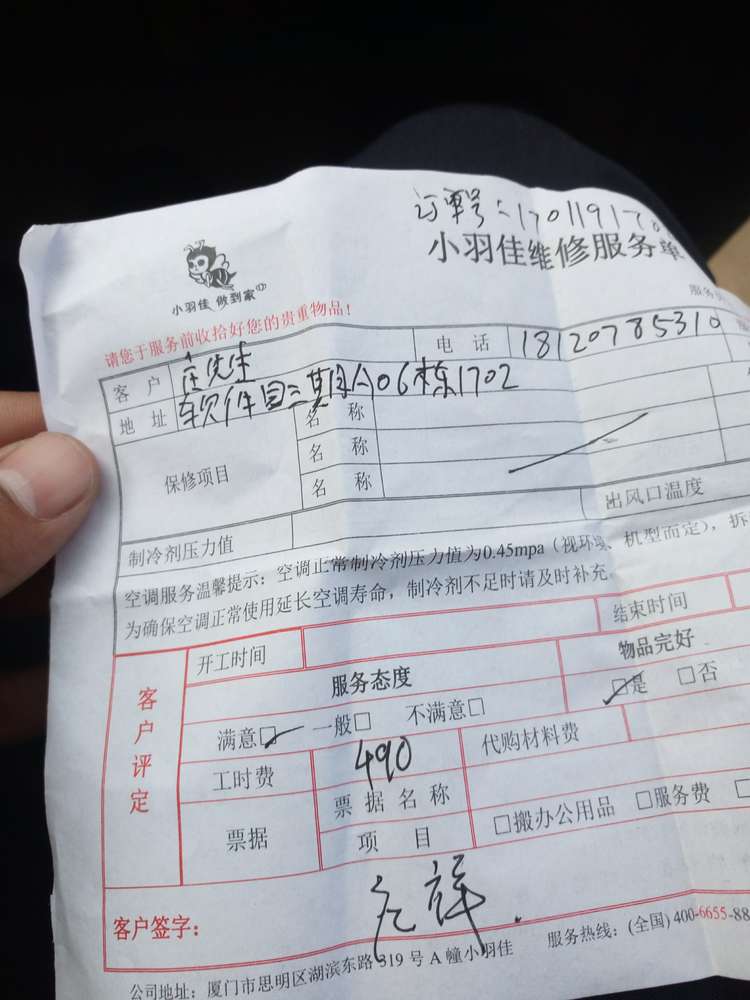 订单号:17011917
小羽佳维修服务单
小羽佳 做到家
请您于服务前收拾好您的贵重物品!
客户 庄先生 电话 18120785310
地址 软件园三期A06栋1702
保修项目 名称
名称
名称
制冷剂压力值 出风口温度
空调服务温馨提示:空调正常制冷剂压力值为0.45mpa(视环境、机型而定),拆
为确保空调正常使用延长空调寿命,制冷剂不足时请及时补充。
客户评定
开工时间 结束时间
服务态度 物品完好
满意☑ 一般□ 不满意□ ☑是 □否
工时费 490 代购材料费
票据 票据名称 □搬办公用品 □服务费 □
项目
客户签字:
公司地址:厦门市思明区湖滨东路319号A幢小羽佳 服务热线:(全国)400-6655-88